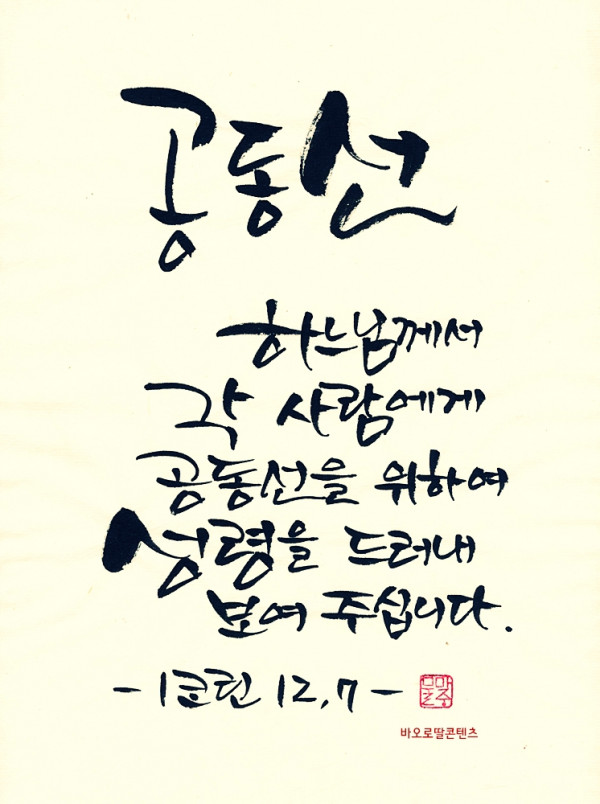 공동선
하느님께서
각 사람에게
공동선을 위하여
성령을 드러내
보여 주십니다.
- 1코린 12,7 -
바오로딸콘텐츠